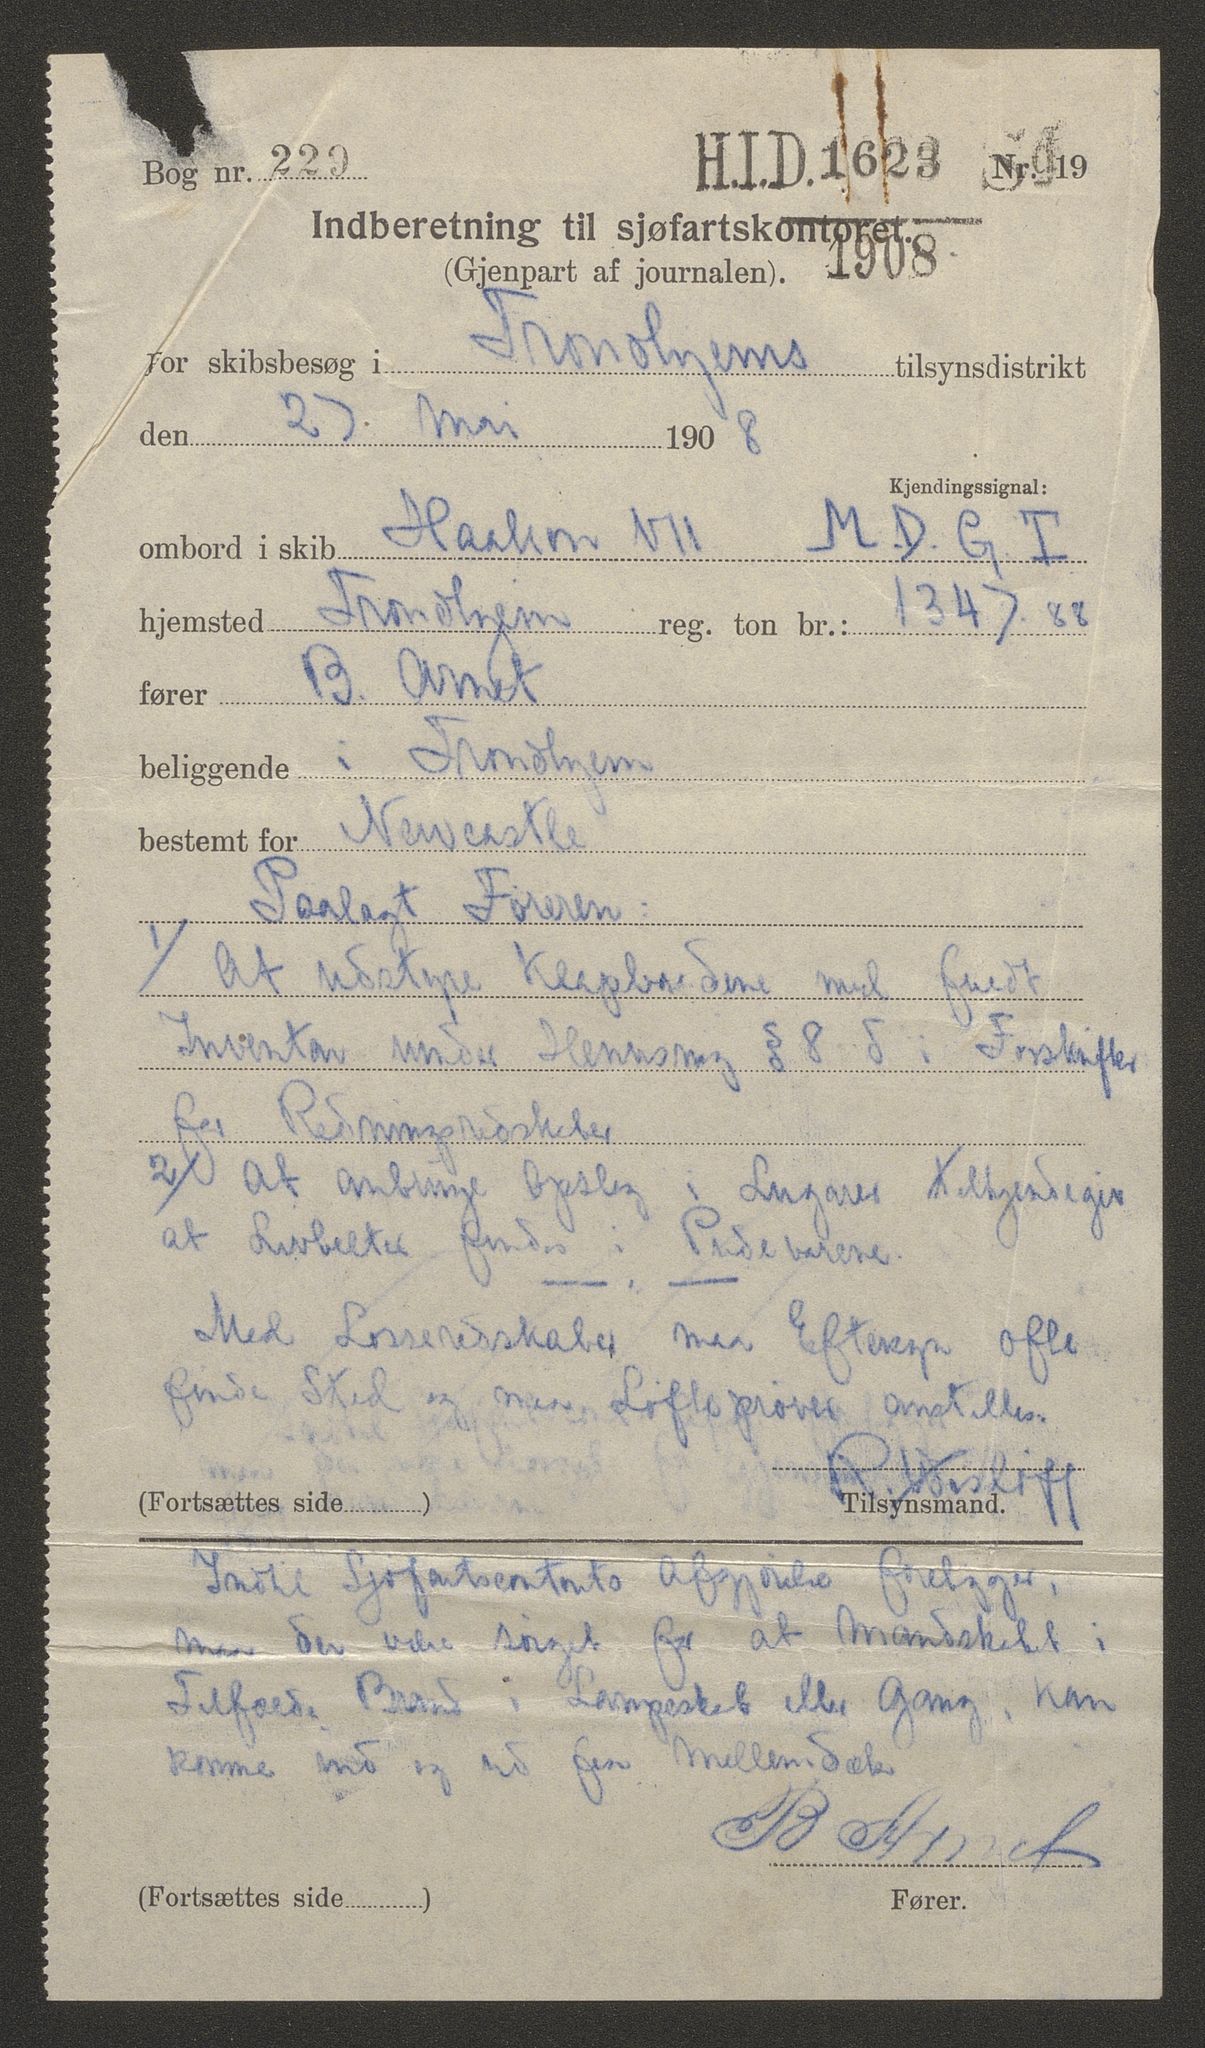 Bog nr. 229 H.I.D. 1623 Nr. 19
Indberetning til sjøfartskontoret.
1908
(Gjenpart af journalen).
For skibsbesøg i Trondhjems tilsynsdistrikt
den 27. Mai 1908
Kjendingssignal:
ombord i skib Haakon VII M.D.G.T
hjemsted Trondhjem reg. ton br.: 1347.88
fører B. Arnet
beliggende i Trondhjem
bestemt for Newcastle
Paalagt Føreren:
1/ At udstyre Klapbaadene med fuldt
Inventar under Henvisning § 8 d i Forskrifter
for Redningsredskaber
2/ At anbringe Opslag i Lugarer tilkjendegiv
at Livbelter findes i Pudevarene.
Med Losseredskaber maa Eftersyn ofte
finde Sted og maa Løfteprøver anstilles.
(Fortsættes side ) Tilsynsmand.
Indtil Sjøfartscontorets Afgjørelse foreligger,
maa der være sørget for at Mandskabet i
Tilfælde Brand i Lampeskab eller Gang, kan
komme ind og ud fra Mellemdæk
B Arnet
(Fortsættes side ) Fører.